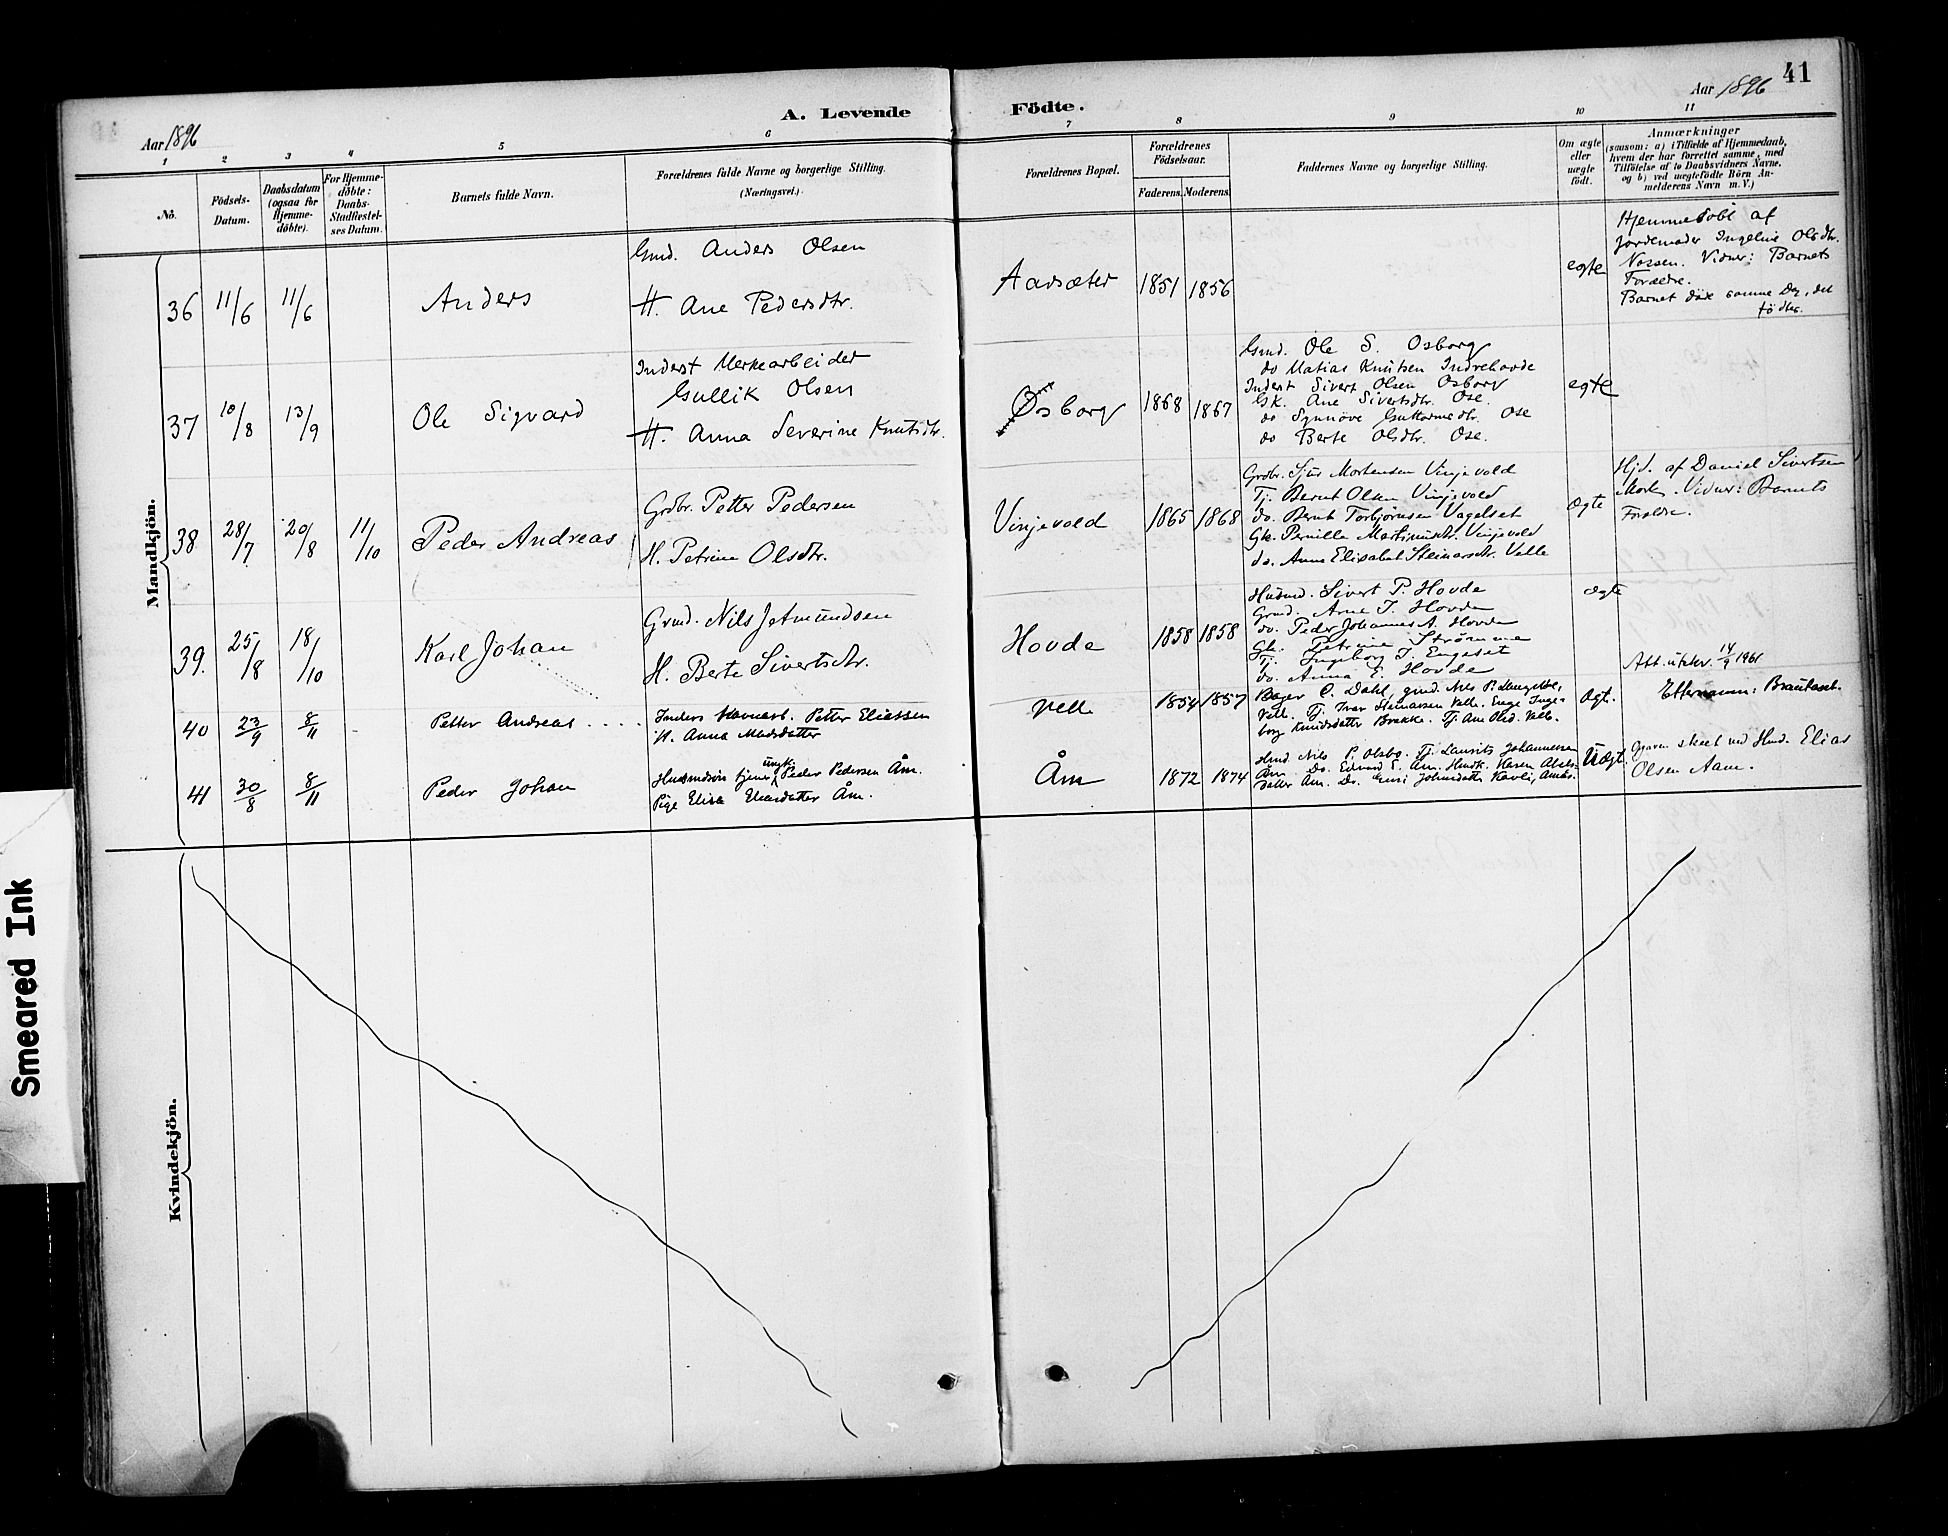 41
A. Levende Födte.
Aar 1896
Aar 1896
1 2 3 4 5 6 7 8 9 10 11
No.
Födsels-Datum.
Daabsdatum (ogsaa for Hjemme-döbte).
For Hjemme-döbte: Daabs-Stadfæstel-ses Datum.
Barnets fulde Navn.
Forældrenes fulde Navne og borgerlige Stilling.
(Næringsvei.)
Forældrenes Bopæl.
Forældrenes Födselsaar.
Faderens. Moderens.
Faddernes Navne og borgerlige Stilling.
Om ægte eller uægte födt.
Anmærkninger
(saasom: a) i Tilfælde af Hjemmedaab, hvem der har forrettet samme, med Tilföielse af to Daabsvidners Navne, og b) ved uægtefödte Börn An-melderens Navn m. V.)
Mandkjön.
36 11/6 11/6 Anders
Gmd. Anders Olsen
H. Ane Pedersdtr.
Aarsæter 1851 1856 egte
Hjemmedöbt af
Jordemoder Ingeline Olsdtr.
Vidner: Barnets
Forældre.
Barnet döde samme Dag, det
födtes.
37 10/8 13/9 Ole Sigvard
Inderst Merkearbeider
Gullik Olsen
H. Anna Severine Knutsdtr.
Øsborg 1868 1867
Gmd. Ole S. Osborg
do Matias Knutsen Indrehovde
Inderst Sivert Olsen Osborg
Gk. Ane Sivertsdtr. Ose.
do Synnöve Guttormsdtr. Ose
do Berte Olsdtr. Ose.
egte
38 28/7 20/8 11/10 Peder Andreas
Grdbr. Petter Pedersen
H. Petrine Olsdtr.
Vinjevold 1865 1868
Grdbr. Sjur Mortensen Vinjevold
Tj. Bernt Olsen Vinjevold
do. Bernt Torbjørnsen Vagelset
Gk. Pernille Martinusdtr. Vinjevold
do. Anne Elisabet Steinarsdtr. Velle
Ægte
Hjd. af Daniel Sivertsen
Mork. Vidner: Barnets
Forældre.
39. 25/8 18/10 Karl Johan
Grmd. Nils Jetmundsen
H. Berte Sivertsdtr.
Hovde 1858 1858
Husmd. Sivert P. Hovde
Grmd. Arne T. Hovde
do. Peder Johannes A. Hovde
Gk. Petrine Strömme
Tj. Ingeborg T. Engeset
do. Anna E. Hovde
ægte
Att. utskr. 14/9 1961
40 23/9 8/11 Petter Andreas
Petter Eliassen
H. Anna Madsdatter
Velle 1854 1857
C. Dahl, gmd. Nils P. Langelbe,
Velle. Tj. Ivar Steinarsen Velle. Enge Inge-
borg Knudsdatter Brekke. Tj. Ane Olsd. Velle.
Ægt.
Etternamn: Brautaset.
41 30/8 8/11 Peder Johan
ungk. Peder Pedersen Åm.
Pige Elisa Eliasdatter Åm.
Åm 1872 1874
Hmd Nils P. Tj. Laurits Johannessen
Åm Do. Edvard E. Åm. Hmdk. Karen Alets-
datter Åm. Do. Johnsdatter
Uægt.
Gjaren skeet ved Hmd. Elias
Olsen Aam.
Kvindekjön.
Smeared Ink